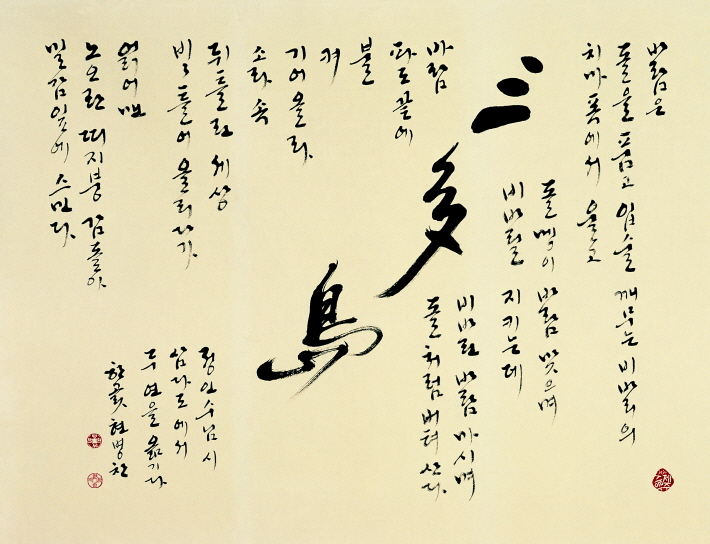 바람은
돌을 품고 입술 깨무는 비바리의
치마폭에서 울고
돌멩이 바람 맞으며
비바릴 지키는데
비바린 바람 마시며
돌처럼 버텨 산다.
三多島
바람
파도 끝에
불
켜
기어올라
소라 속
뒤틀린 세상
틀어 올리다가
얽어맨
노오란 띠지붕 감돌아
밀감잎에 스민다.
정인수님 시
삼다도에서
두 연을 옮기다
한곬 현병찬